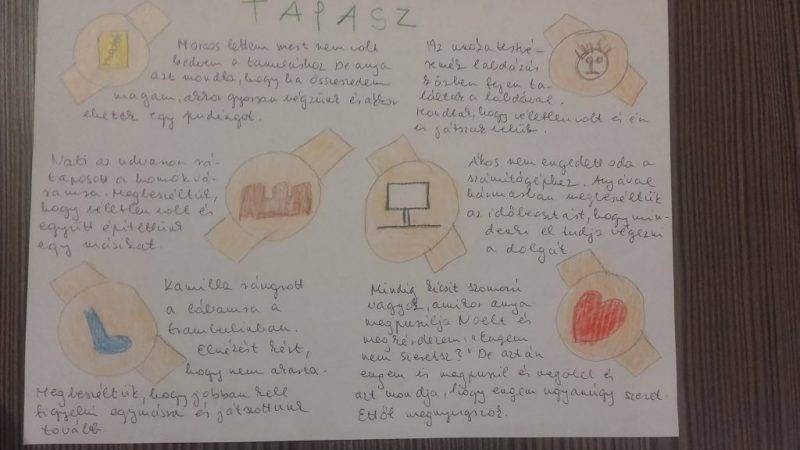 TAPASZ
Morcos lettem mert nem volt
kedvem a tanuláshoz. De anya
azt mondta, hogy ha összeszedem
magam, akkor gyorsan végzünk és akkor
ehetek egy pudingot.
Az unokatestvé-
remék labdázás
közben fejen ta-
láltak a labdával.
Mondták, hogy véletlen volt és én
is játszak velük.
Nati az udvaron rá-
taposott a homokvá-
ramra. Megbeszéltük,
hogy véletlen volt és
együtt építettünk
egy másikat.
Ákos nem engedett oda a
számítógéphez. Anyával
hármasban megbeszéltük
az időbeosztást, hogy min-
denki el tudja végezni
a dolgát
Kamilla ráugrott
a lábamra a
trambulinban.
Elnézést kért,
hogy nem akarta.
Megbeszéltük, hogy jobban kell
figyelni egymásra és játszottunk
tovább.
Mindig kicsit szomorú
vagyok, amikor anya
megpuszilja Noelt és
megkérdezem: "Engem
nem szeretsz?" De aztán
engem is megpuszil és megölel és
azt mondja, hogy engem ugyanúgy szeret.
Ettől megnyugszok.